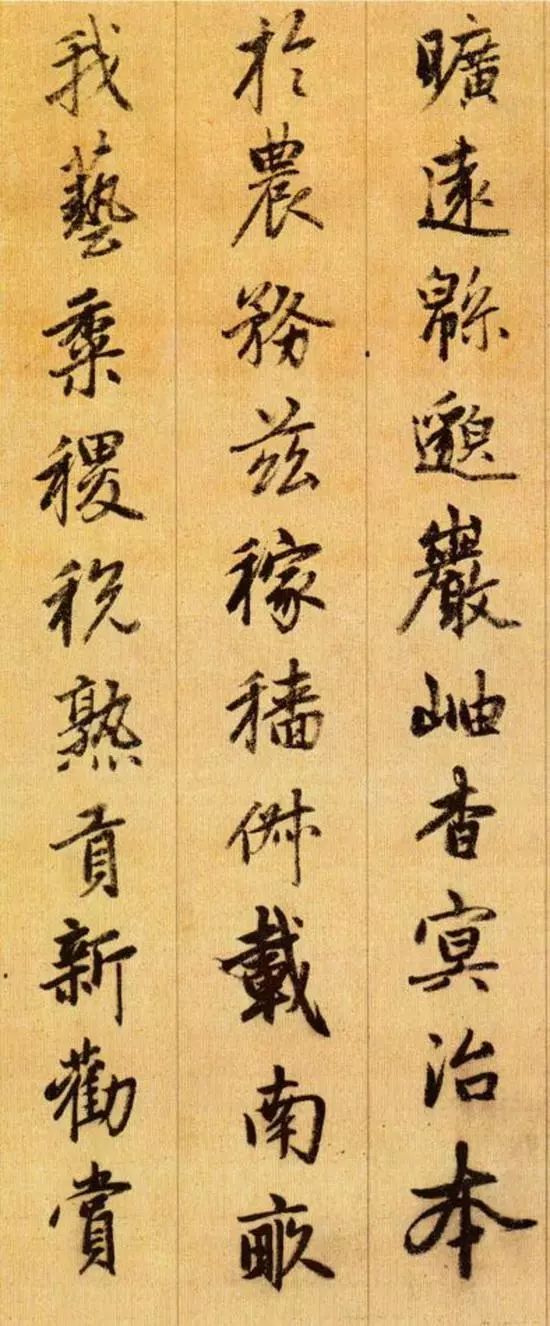 曠遠緜邈巖岫杳冥治本
於農務茲稼穡俶載南畝
我藝黍稷稅熟貢新勸賞